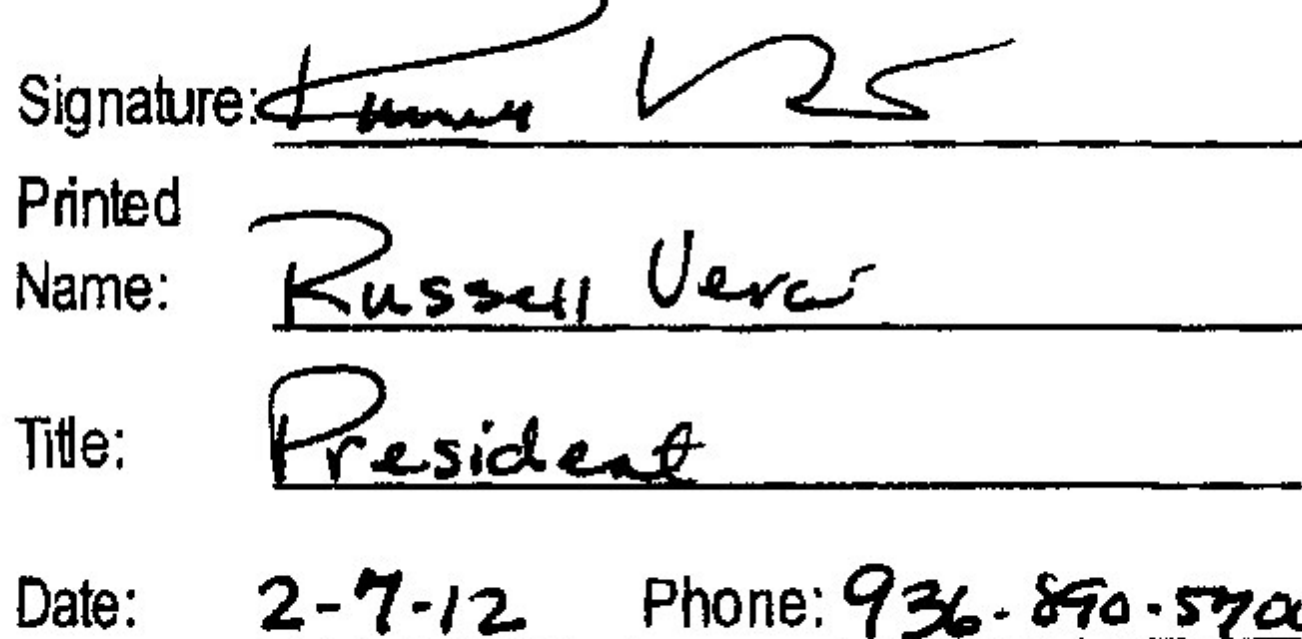 Signature:
Printed
Name: Russell Vera
Title: President
Date: 2-7-12 Phone: 936-890-570